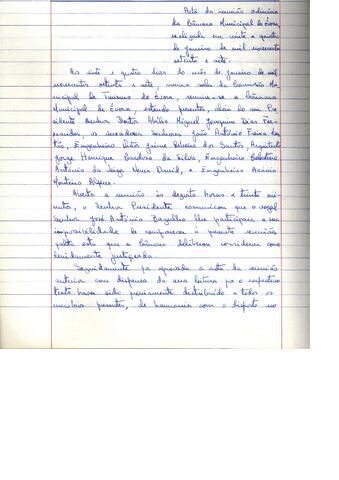 Acta da reunião ordinária
da Câmara Municipal de Évora,
realizada em vinte e quatro
de janeiro de mil novecentos
setenta e sete.
Aos vinte e quatro dias do mês de janeiro de mil
novecentos setenta e sete, numa sala da Comissão Mu-
nicipal de Turismo de Évora, reuniu-se a Câmara
Municipal de Évora, estando presentes, além do seu Pre-
sidente Senhor Doutor Abílio Miguel Joaquim Dias Fer-
nandes, os vereadores Senhores João António
Engenheiro Vitor Jaime dos Santos, Arquitecto
Jorge Henrique Cardoso da Silva, Engenheiro Celestino
António da Veiga Neves David, e Engenheiro Acácio
Monteiro
Aberta a reunião às dezoito horas e trinta mi-
nutos, o Senhor Presidente comunicou que o vogal
Senhor José António lhe participara a sua
impossibilidade de comparecer à presente reunião
falta esta que a Câmara deliberou considerar como
devidamente justificada.
Seguidamente foi aprovada a acta da reunião
anterior com dispensa da sua leitura por o respectivo
texto haver sido previamente distribuído a todos os
membros presentes, de harmonia com o disposto no